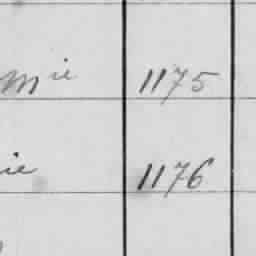 Mie 1175
ie 1176